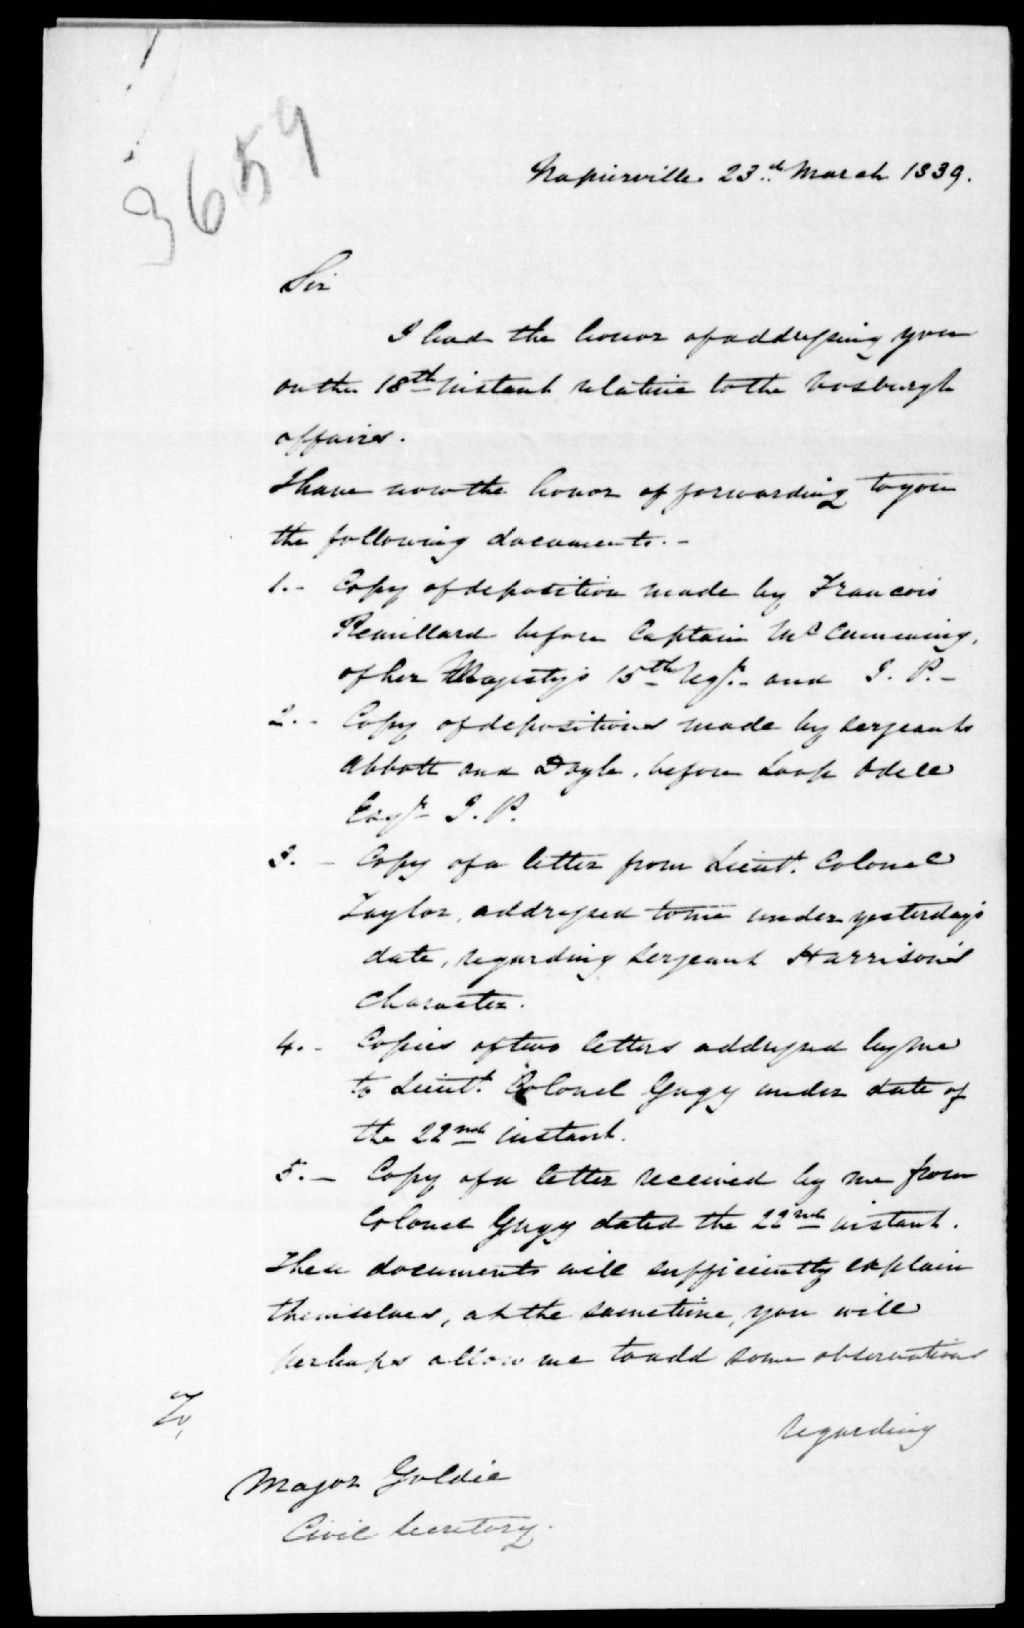 3659
Napierville 23.d March 1839.
Sir
I had the honor of addressing you
on the 18th instant relative to the Vosburgh
affairs.
I have now the honor of forwarding to you
the following documents.-
1.- Copy of deposition made by Francois
Remillard before Captain Mc Cumming,
of her Majesty's 15th Regt.- and J. P.-
2.- Copy of depositions made by Sergeants
Abbott and Doyle, before Loop Odell
Esqr J. P.
3. - Copy of a letter from Lieut. Colonel
Taylor, addressed to me under yesterday's
date, regarding Sergeant Harrison's
Character.
4.- Copies of two letters addressed by me
to Lieut. Colonel Gugy under date of
the 22nd instant.
5.- Copy of a letter received by me from
Colonel Gugy dated the 22nd instant.
These documents will sufficiently explain
themselves, at the sametime, you will
perhaps allow me to add some observations
regarding
To,
Major Goldie
Civil Secretary.